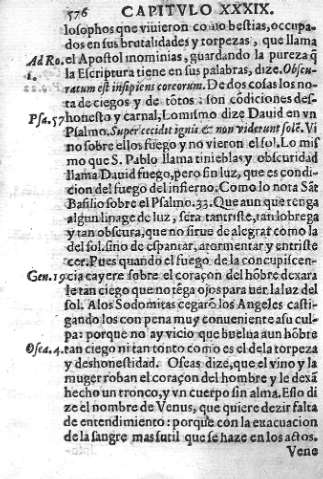 576 CAPITVLO XXXIX.
losophos que viuieron como bestias, occupa-
dos en sus brutalidades y torpezas, que llama
Ad Ro. el Apostol inominias, guardando la pureza q̃
1. la Escriptura tiene en sus palabras, dize. Obscu-
ratum est insipiens cor eorum. De dos cosas los no-
ta de ciegos y de tõtos: son cõdiciones des-
Psa. 57 honesto y carnal, Lo mismo dize Dauid en vn
Psalmo. Super cecidit ignis & non viderunt solẽ. Vi
no sobre ellos fuego y no vieron el sol. Lo mis
mo que S. Pablo llama tinieblas y obscuridad
llama Dauid fuego, pero sin luz, que es condi-
cion del fuego del infierno. Como lo nota Sãt
Basilio sobre el Psalmo. 33. Que aun que tenga
algun linage de luz, sera tan triste, tan lobrega
y tan obscura, que no sirue de alegrar como la
del sol. sino de espantar, atormentar y entriste
cer. Pues quando el fuego de la concupiscen-
Gen. 19 cia cayere sobre el coraçon del hõbre dexara
le tan ciego que no tẽga ojos para uer la luz del
sol. A los Sodomitas cegarõ los Angeles casti-
gando los con pena muy conueniente a su cul-
pa: porque no ay vicio que buelua aun hõbre
Osea. 4. tan ciego ni tan tonto como es el de la torpeza
y deshonestidad. Oseas dize, que el vino y la
muger roban el coraçon del hombre y le dexã
hecho un tronco, y vn cuerpo sin alma. Esso di
ze el nombre de Venus, que quiere dezir falta
de entendimiento: porque con la euacuacion
de la sangre mas sutil que se haze en los actos.
Vene